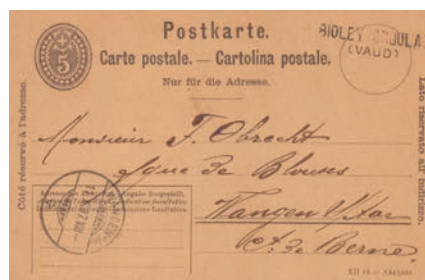 Postkarte.
Carte postale. — Cartolina postale.
Nur für die Adresse.
5
BIOLEY
(VAUD)
Côté réservé à l'adresse.
Lato riservato all'indirizzo.
Monsieur F. Obrecht
fque de Blouses
Wangen s/Aar
Ct. de Berne